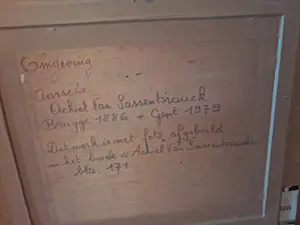 Omgeving
Aarsele
Achiel Van Sassenbrouck
Brugge 1886 + Gent 1979
Dit werk is met foto afgebeeld
in het boek « Achiel Van Sassenbrouck
blz. 171